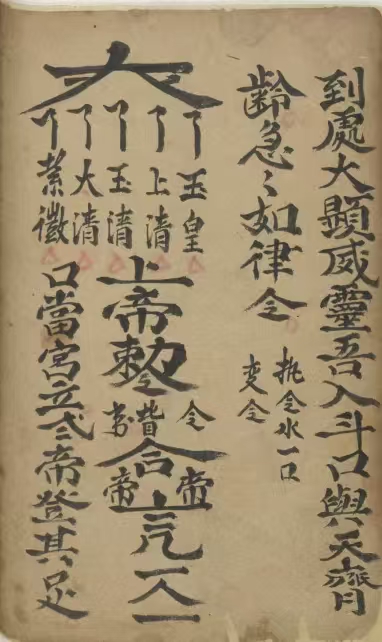 到處大顯威靈吾入斗口與天齊
齡急〻如律令
執令水一口
变令
大
玉皇
上清
玉清
火清
紫微
上帝敕令
令
帝
合
帝
口當宮立
帝登其足